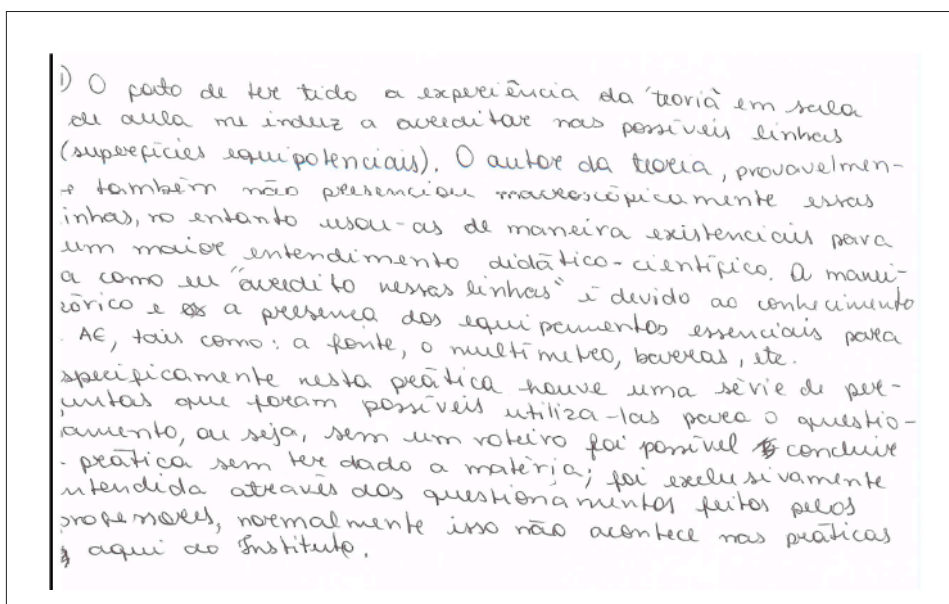 1) O fato de ter tido a experiência da "teoria" em sala
de aula me induz a acreditar nas possíveis linhas
(superfícies equipotenciais). O autor da teoria, provavelmen-
e também não presenciou macroscòpicamente essas
inhas, no entanto usou-as de maneira existenciais para
um maior entendimento didático-científico. A manei-
a como eu "acredito nessas linhas" é devido ao conhecimento
eórico e a presença dos equipamentos essenciais para
. AE, tais como: a fonte, o multímetro, barras, etc.
specificamente nesta prática houve uma série de per-
untas que foram possíveis utiliza-las para o questio-
amento, ou seja, sem um roteiro foi possível concluir
prática sem ter dado a matéria; foi exclusivamente
ntendida através dos questionamentos feitos pelos
professores, normalmente isso não acontece nas práticas
aqui do Instituto.